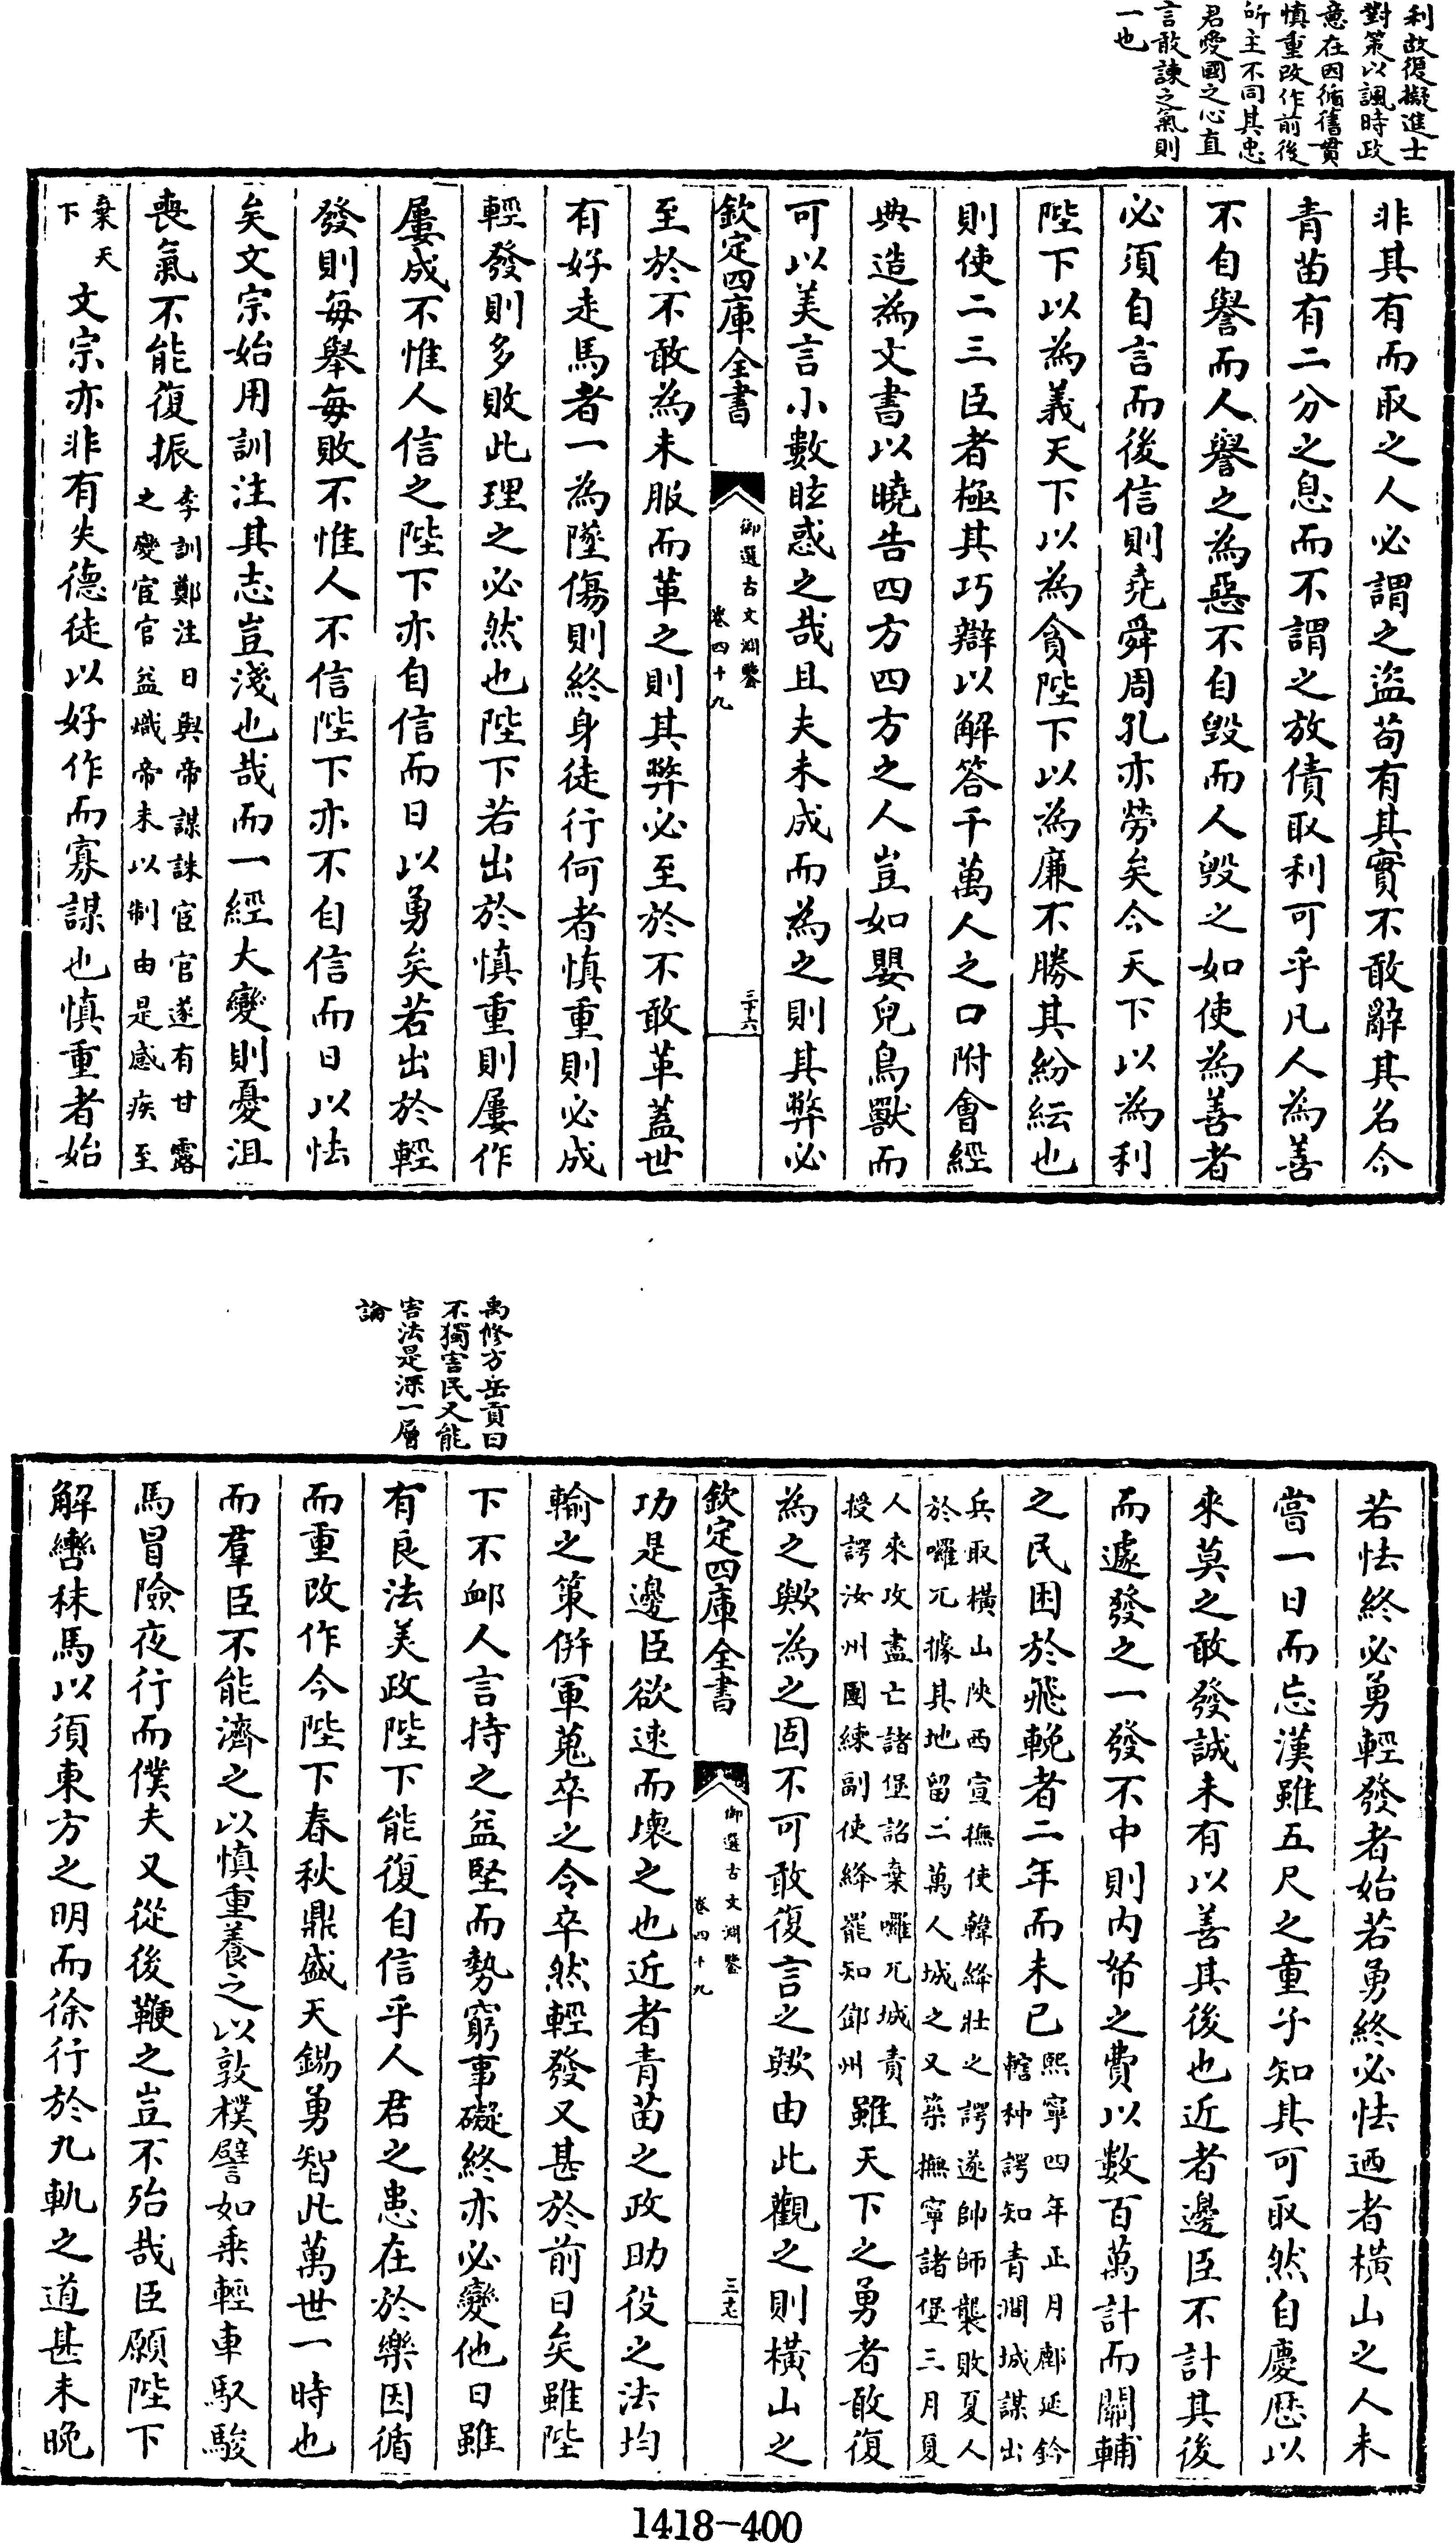 利故復擬進士
對策以諷時政
意在因循舊貫
慎重改作前後
所主不同其忠
君愛國之心直
言敢諫之氣則
一也
非其有而取之人必謂之盜苟有其實不敢辭其名今
青苗有二分之息而不謂之放債取利可乎凡人為善
不自譽而人譽之為惡不自毀而人毀之如使為善者
必須自言而後信則堯舜周孔亦勞矣今天下以為利
陛下以為義天下以為貪陛下以為廉不勝其紛紜也
則使二三臣者極其巧辯以解答千萬人之口附會經
典造為文書以曉告四方四方之人豈如嬰兒鳥獸而
可以美言小數眩惑之哉且夫未成而為之則其弊必
欽定四庫全書
御選古文淵鑒
卷四十九
三十六
至於不敢為未服而革之則其弊必至於不敢革蓋世
有好走馬者一為墜傷則終身徒行何者慎重則必成
輕發則多敗此理之必然也陛下若出於慎重則屢作
屢成不惟人信之陛下亦自信而日以勇矣若出於輕
發則每舉每敗不惟人不信陛下亦不自信而日以怯
矣文宗始用訓注其志豈淺也哉而一經大變則憂沮
喪氣不能復振
李訓鄭注日與帝謀誅宦官遂有甘露
之變宦官益熾帝未以制由是感疾至
棄天
下
文宗亦非有失德徒以好作而寡謀也慎重者始
禹修方岳貢曰
不獨害民又能
害法是深一層
論
若怯終必勇輕發者始若勇終必怯迺者橫山之人未
嘗一日而忘漢雖五尺之童子知其可取然自慶歷以
來莫之敢發誠未有以善其後也近者邊臣不計其後
而遽發之一發不中則內帑之費以數百萬計而關輔
之民困於飛輓者二年而未已
熙寧四年正月鄜延鈐
轄种諤知青澗城謀出
兵取橫山陝西宣撫使韓絳壯之諤遂帥師襲敗夏人
於囉兀據其地留二萬人城之又築撫寧諸堡三月夏
人來攻盡亡諸堡詔棄囉兀城責
授諤汝州團練副使絳罷知鄧州
雖天下之勇者敢復
為之歟為之固不可敢復言之歟由此觀之則橫山之
欽定四庫全書
御選古文淵鑒
卷四十九
三十七
功是邊臣欲速而壞之也近者青苗之政助役之法均
輸之策併軍蒐卒之令卒然輕發又甚於前日矣雖陛
下不卹人言持之益堅而勢窮事礙終亦必變他日雖
有良法美政陛下能復自信乎人君之患在於樂因循
而重改作今陛下春秋鼎盛天錫勇智此萬世一時也
而羣臣不能濟之以慎重養之以敦樸譬如乘輕車馭駿
馬冒險夜行而僕夫又從後鞭之豈不殆哉臣願陛下
解轡秣馬以須東方之明而徐行於九軌之道甚未晚
1418-400